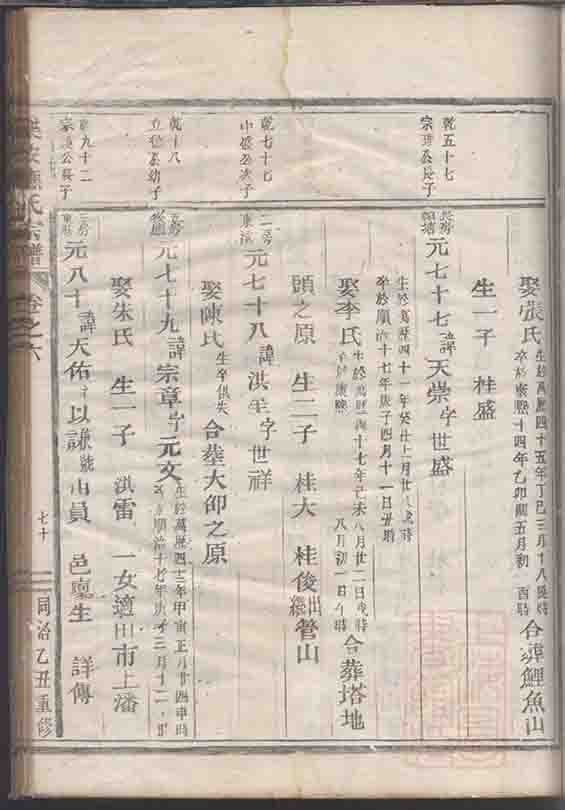 娶張氏 生於萬歷四十五年丁巳三月十八 時 卒於康熙十四年乙卯 五月初 酉時 合葬鯉魚山
生一子 桂盛
乾五十七
宗 公長子
長房
元七十七諱天崇字世盛
生於萬歷四十一年癸丑 月廿 時
卒於順治十七年庚子四月十一日丑時
娶李氏 生於萬歷四十七年己未八月廿二日戌時 卒於康熙 八月初一日午時 合葬塔地
頭之原 生二子 桂大 桂俊出繼營山
乾七十七
公次子
二房
元七十八諱洪 字世祥
娶陳氏 生卒俱失 合葬大 之原
乾十八
公幼子
元七十九諱宗章字元文 生於萬歷四十三年甲寅正月廿四 時 順治十七年庚子三月十二
娶朱氏 生一子 洪雷 一女適田市上潘
九十二
宗 公長子
三房
元八十諱天佑字以謙號 山員 邑廩生 詳傳
氏宗譜 卷之六
七十
同治乙丑重修